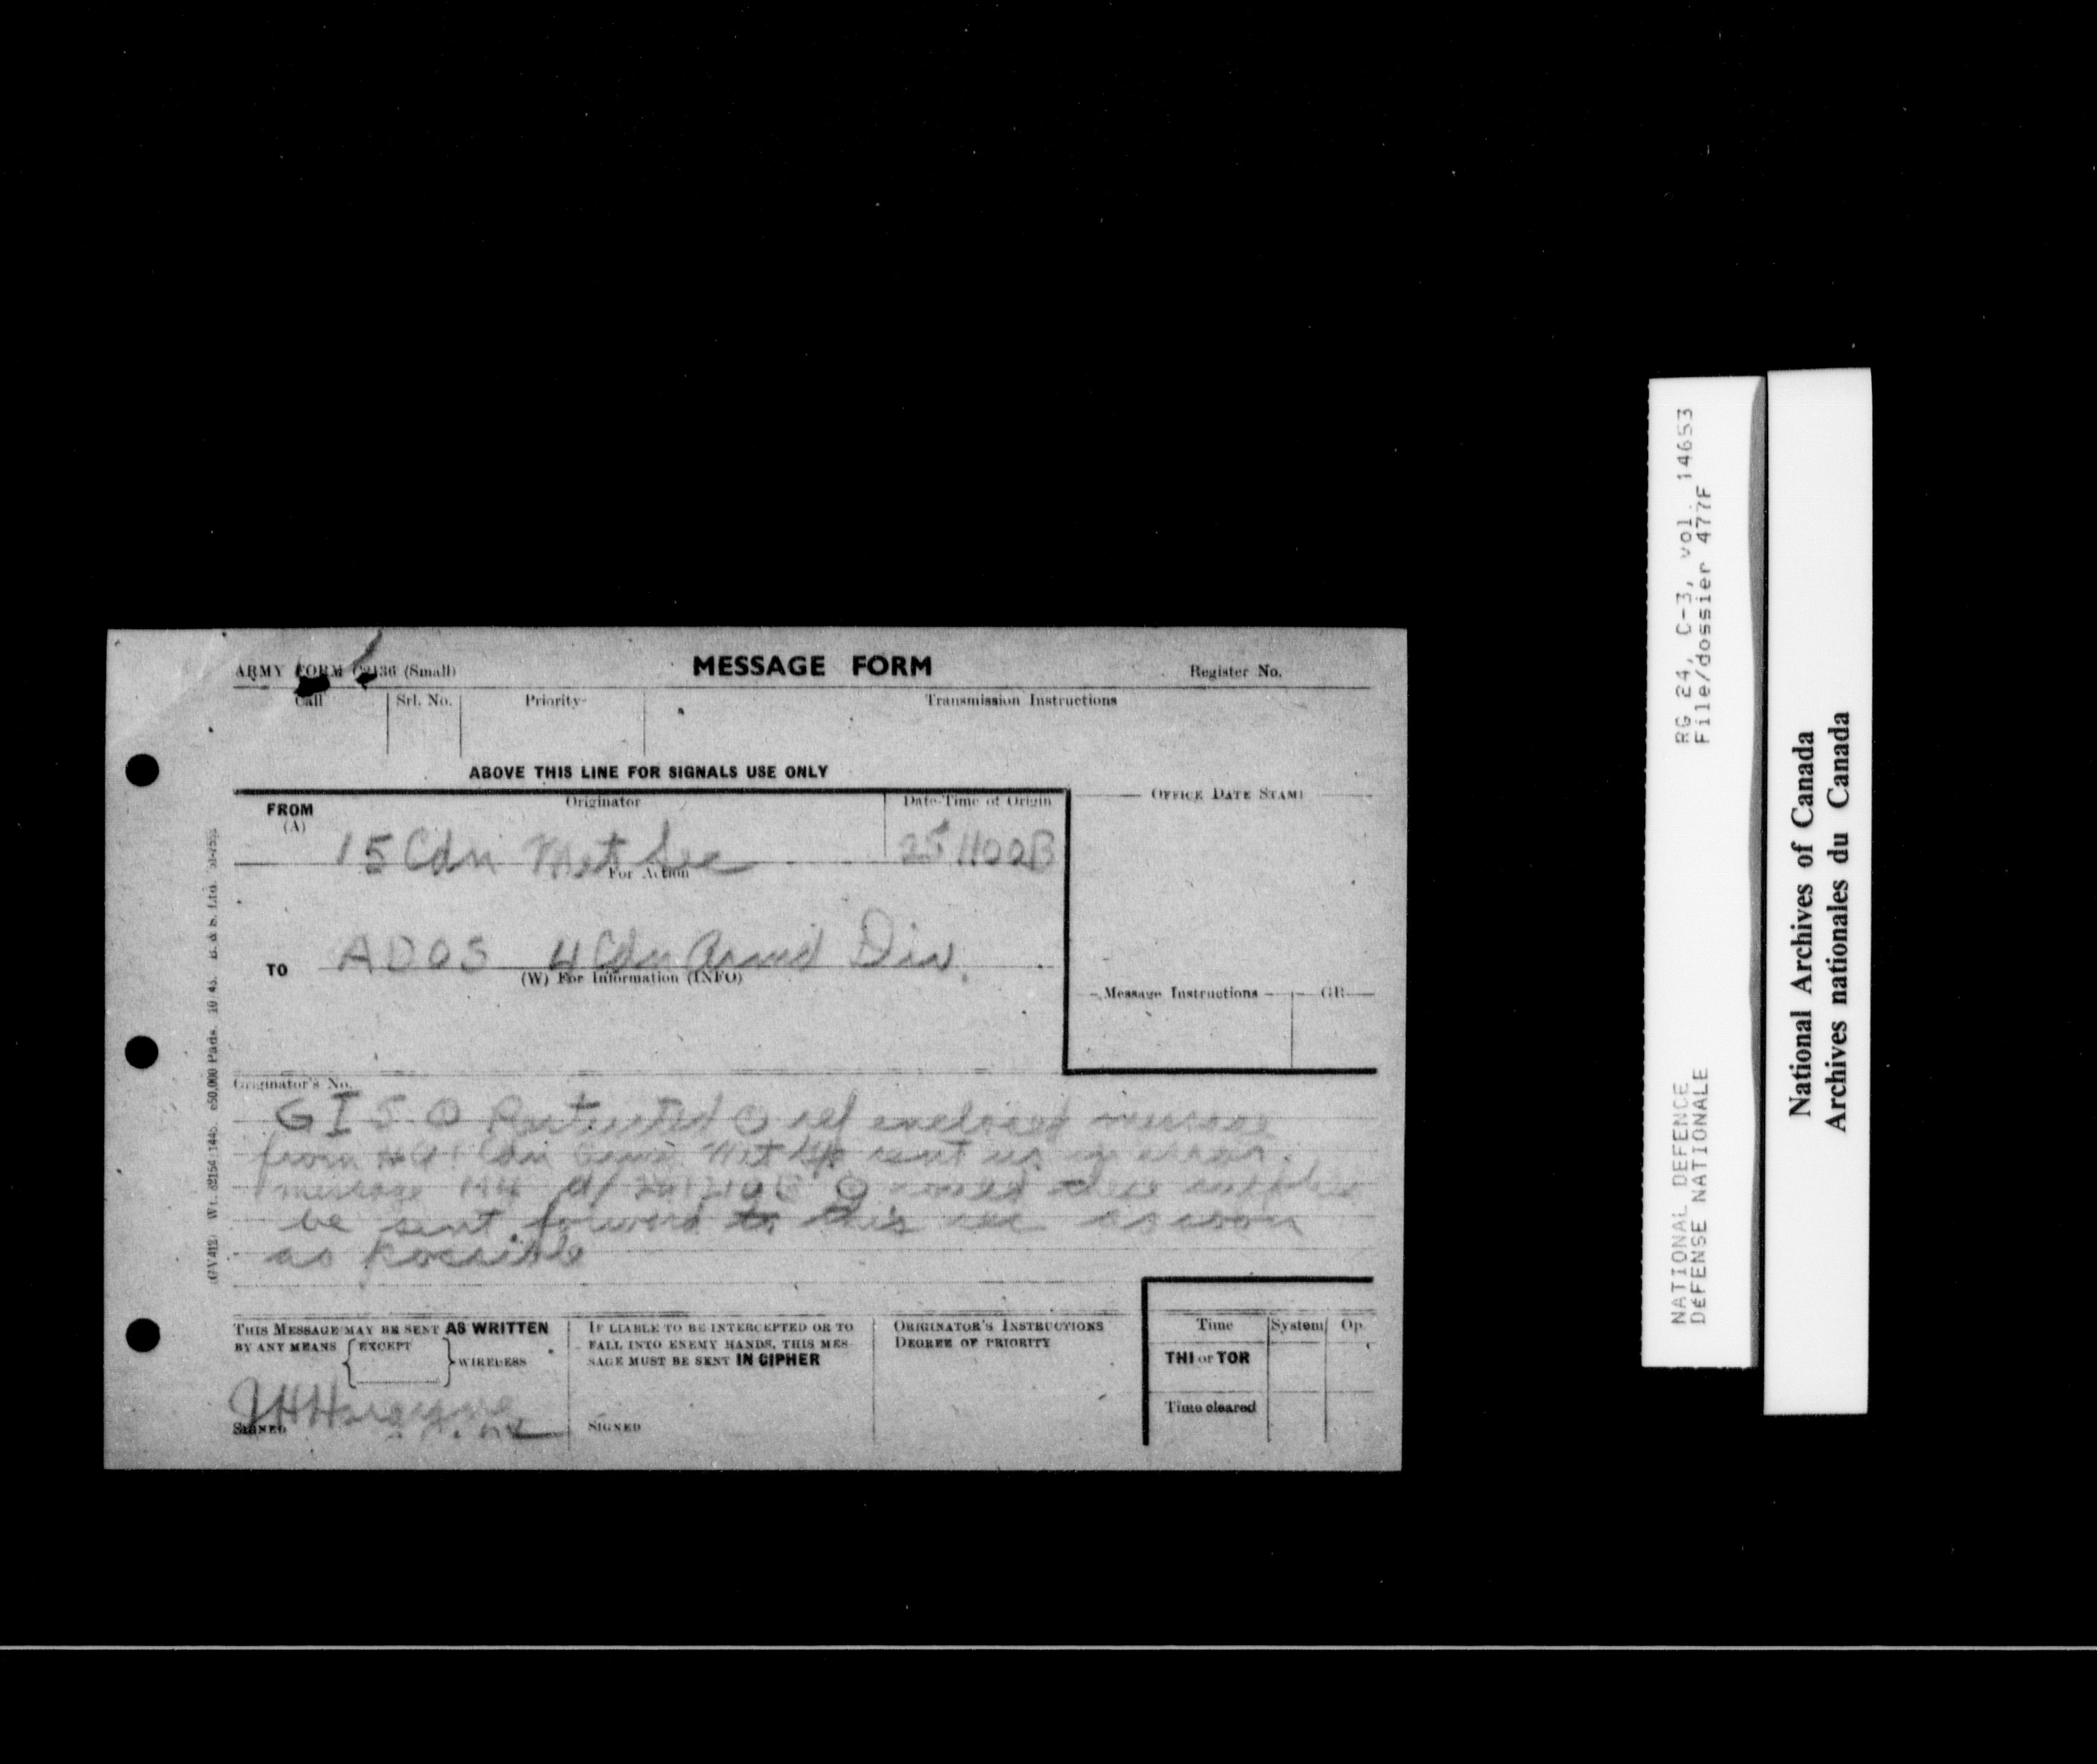 ARMY FORM C2136 (Small)
MESSAGE FORM
Register No.
Call
Srl. No.
Priority
Transmission Instructions
ABOVE THIS LINE FOR SIGNALS USE ONLY
FROM
(A)
Originator
Date-Time of Origin
OFFICE DATE STAMP
15 Cdn Met Sec
251100B
For Action
TO
ADOS 4 Cdn Armd Div
(W) For Information (INFO)
Message Instructions
GR
Originator's No.
GI 5 Restricted ref enclosed message
from Cdn Met sent us in error.
message these
be sent forward to this sec as soon
as possible
THIS MESSAGE MAY BE SENT AS WRITTEN
BY ANY MEANS
EXCEPT
WIRELESS
SIGNED
IF LIABLE TO BE INTERCEPTED OR TO
FALL INTO ENEMY HANDS, THIS MES-
SAGE MUST BE SENT IN CIPHER
SIGNED
ORIGINATOR'S INSTRUCTIONS
DEGREE OF PRIORITY
Time
System
Op.
THI or TOR
Time cleared
RG 24, C-3, vol. 14653
File/dossier 477F
NATIONAL DEFENCE
DEFENSE NATIONALE
National Archives of Canada
Archives nationales du Canada